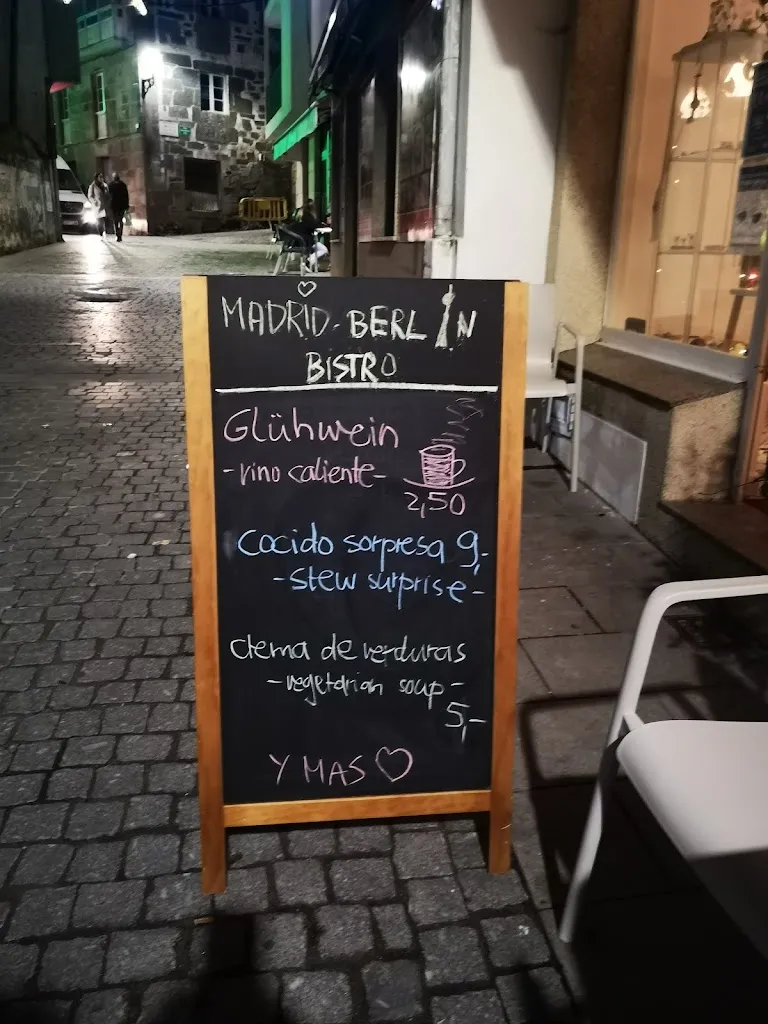 MADRID-BERLIN
BISTRO
Glühwein
-vino caliente-
2,50
cocido sorpresa 9,-
-stew surprise-
crema de verduras
-vegetarian soup-
5,-
Y MAS